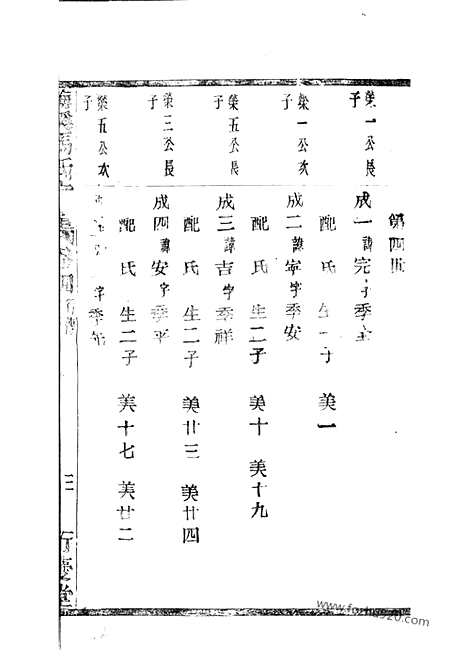 第四世
榮一公長子
成一諱完字季全
配 氏 生一子 美一
榮一公次子
成二諱寧字季安
配 氏 生二子 美十 美十九
榮五公長子
成三諱吉字季祥
配 氏 生二子 美廿三 美廿四
榮三公長子
成四諱安字季平
配 氏 生二子 美十七 美廿二
榮五公次子
字季
三
慶堂